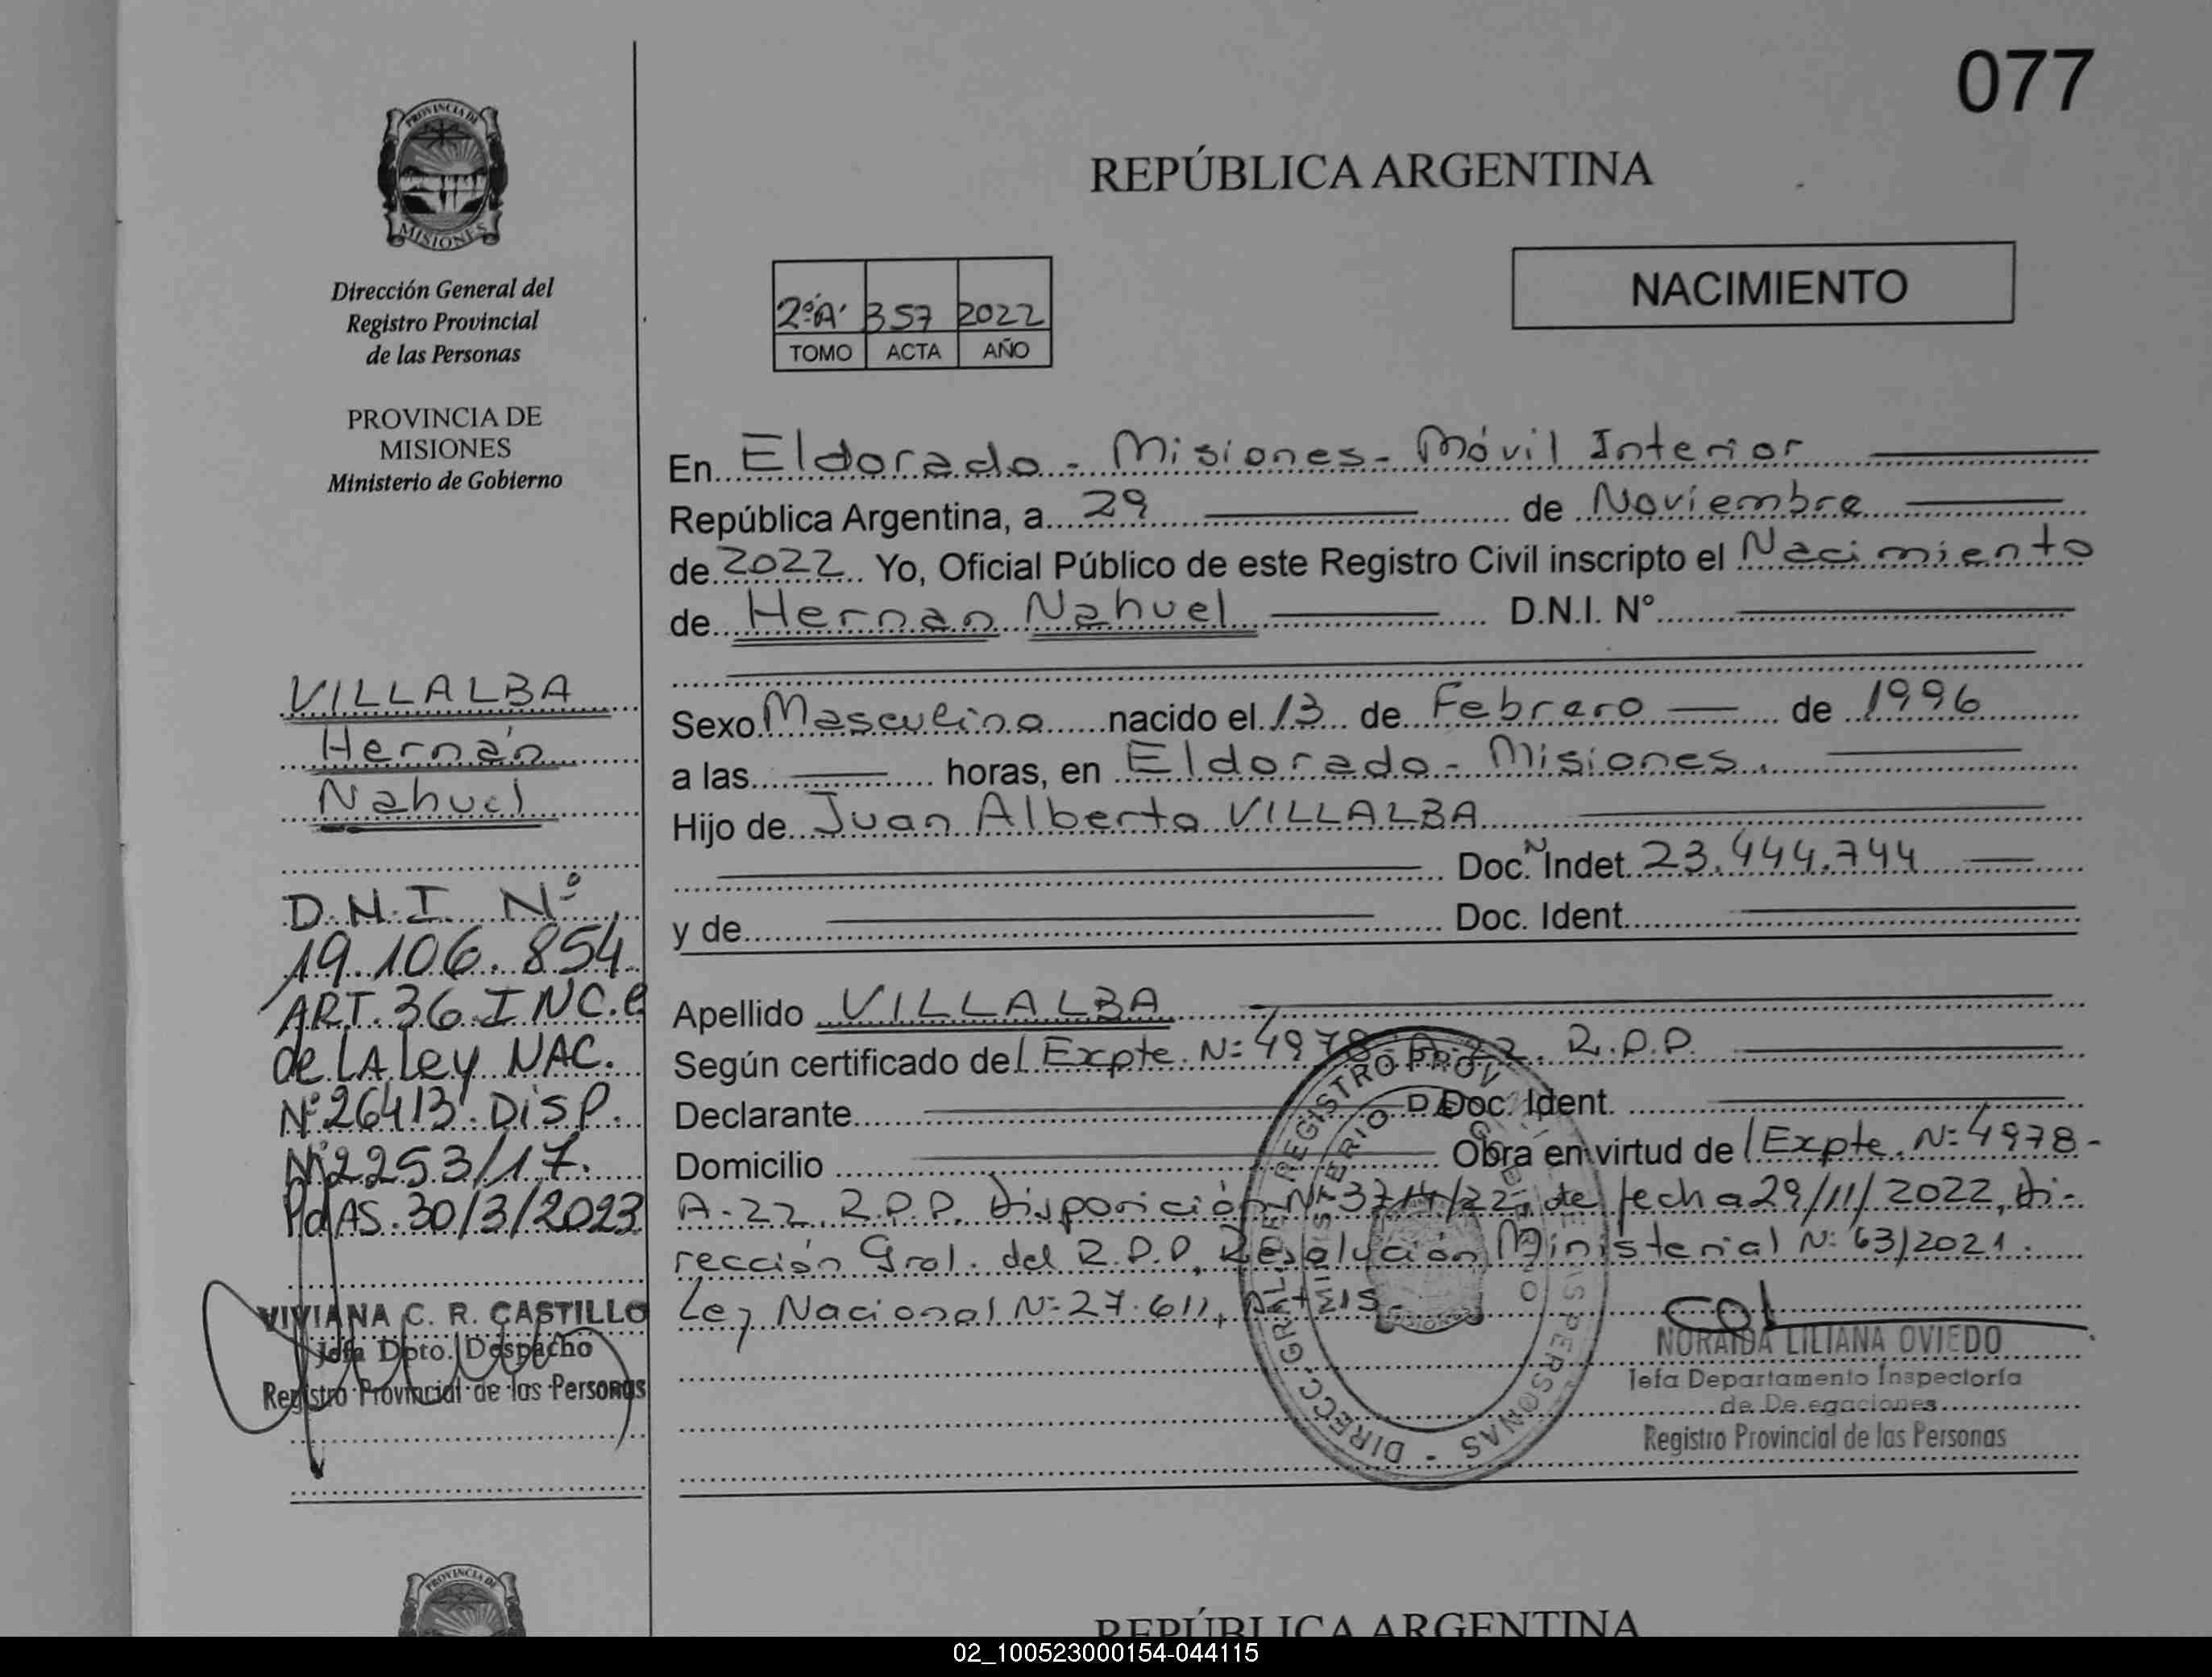 077
PROVINCIA DE
MISIONES
Dirección General del
Registro Provincial
de las Personas
PROVINCIA DE
MISIONES
Ministerio de Gobierno
VILLALBA
Hernán
Nahuel
D.N.I. Nº
19.106.854
ART. 36 INC. e
de LA Ley NAC.
Nº 26413. DISP.
Nº 2253/17.
PdAS. 30/3/2023
VIVIANA C. R. CASTILLO
Jefa Dpto. Despacho
Registro Provincial de las Personas
REPÚBLICA ARGENTINA
NACIMIENTO
2º"A" 357 2022
TOMO ACTA AÑO
En Eldorado - Misiones - Móvil Interior
República Argentina, a 29 de Noviembre
de 2022 Yo, Oficial Público de este Registro Civil inscripto el Nacimiento
de Hernan Nahuel D.N.I. N°
Sexo Masculino nacido el 13 de Febrero de 1996
a las horas, en Eldorado - Misiones.
Hijo de Juan Alberto VILLALBA
Doc. N Indet. 23.444.744
y de Doc. Ident.
Apellido VILLALBA
Según certificado del Expte. Nº 4978-A-22. R.P.P.
Declarante Doc. Ident.
Domicilio Obra en virtud del Expte. Nº 4978-
A-22. R.P.P. Disposición Nº 3714/22, de fecha 29/11/2022, Di-
rección Gral. del R.P.P. Resolución Ministerial Nº 63/2021.
Ley Nacional Nº 27.611,
DIRECC. GRAL. DEL REGISTRO PROV. DE LAS PERSONAS
MINISTERIO DE GOBIERNO
NORAIDA LILIANA OVIEDO
Jefa Departamento Inspectoría
de Delegaciones
Registro Provincial de las Personas
PROVINCIA DE
REPÚBLICA ARGENTINA
02_100523000154-044115